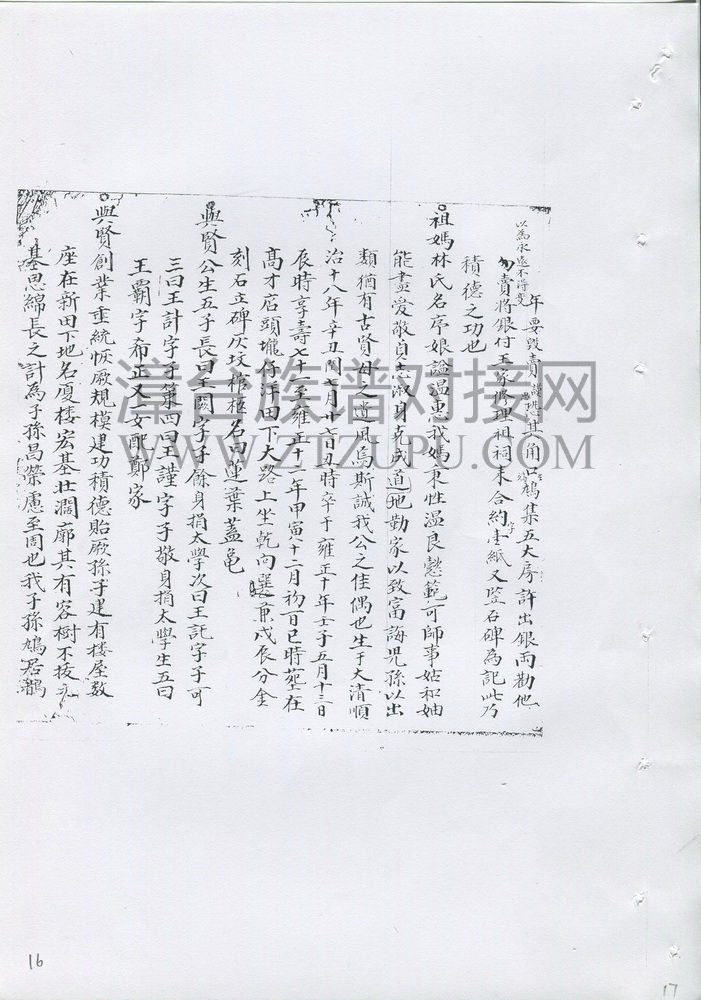 以為永遠不得變
年要毀賣其角鳩集五大房許出銀兩勸他
勿賣將銀付王家修理祖祠來合約壹紙又竪石碑為記此乃
積德之功也
祖媽林氏名序娘諡溫惠我媽秉性溫良懿範可師事姑和妯
能盡愛敬貞志淑身克成道地勤家以致富誨児孫以出
類猶有古賢母之遺風烏斯誠我公之佳偶也生于大清順
治十八年辛丑閏七月廿七日丑時卒于雍正十年壬子五月十二日
辰時享壽七十二至雍正十二年甲寅十二月初一日巳時塟在
高才店頭壠仔汗田下大路上坐乾向巽兼戌辰分金
刻石立碑灰坟棺柩名曰蓮葉蓋龜
興賢公生五子長曰王闕字子餘身捐太學次曰王託字子可
三曰王計字子策四曰王謹字子敬身捐太學生五曰
王覇字希正又一女配鄭家
興賢創業垂統恢厥規模建功積德貽厥孫子建有楼屋数
座在新田下地名厦楼宏基壮濶廓其有容樹不拔之
基思綿長之計為子孫昌榮慮至周也我子孫鳩居鵲
漳台族谱对接网
WWW.ZTZUPU.COM
16
17